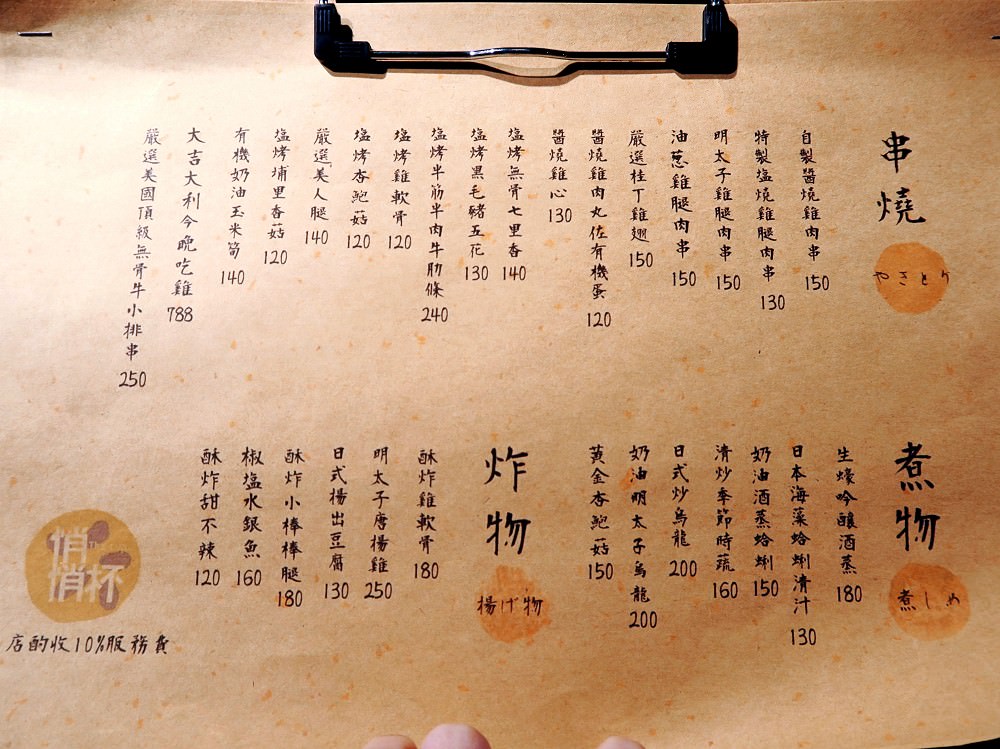 串燒
やきとり
自製醬燒雞肉串 150
特製塩燒雞腿肉串 130
明太子雞腿肉串 150
油蔥雞腿肉串 150
嚴選桂丁雞翅 150
醬燒雞肉丸佐有機蛋 120
醬燒雞心 130
塩烤無骨七里香 140
塩烤黑毛豬五花 130
塩烤半筋半肉牛肋條 240
塩烤雞軟骨 120
塩烤杏鮑菇 120
嚴選美人腿 140
塩烤埔里香菇 120
有機奶油玉米筍 140
大吉大利今晚吃雞 788
嚴選美國頂級無骨牛小排串 250
煮物
煮しめ
生蠔吟釀酒蒸 180
日本海藻蛤蜊清汁 130
奶油酒蒸蛤蜊 150
清炒季節時蔬 160
日式炒烏龍 200
奶油明太子烏龍 200
黃金杏鮑菇 150
炸物
揚げ物
酥炸雞軟骨 180
明太子唐揚雞 250
日式揚出豆腐 130
酥炸小棒棒腿 180
椒塩水銀魚 160
酥炸甜不辣 120
悄悄杯
店酌收10%服務費